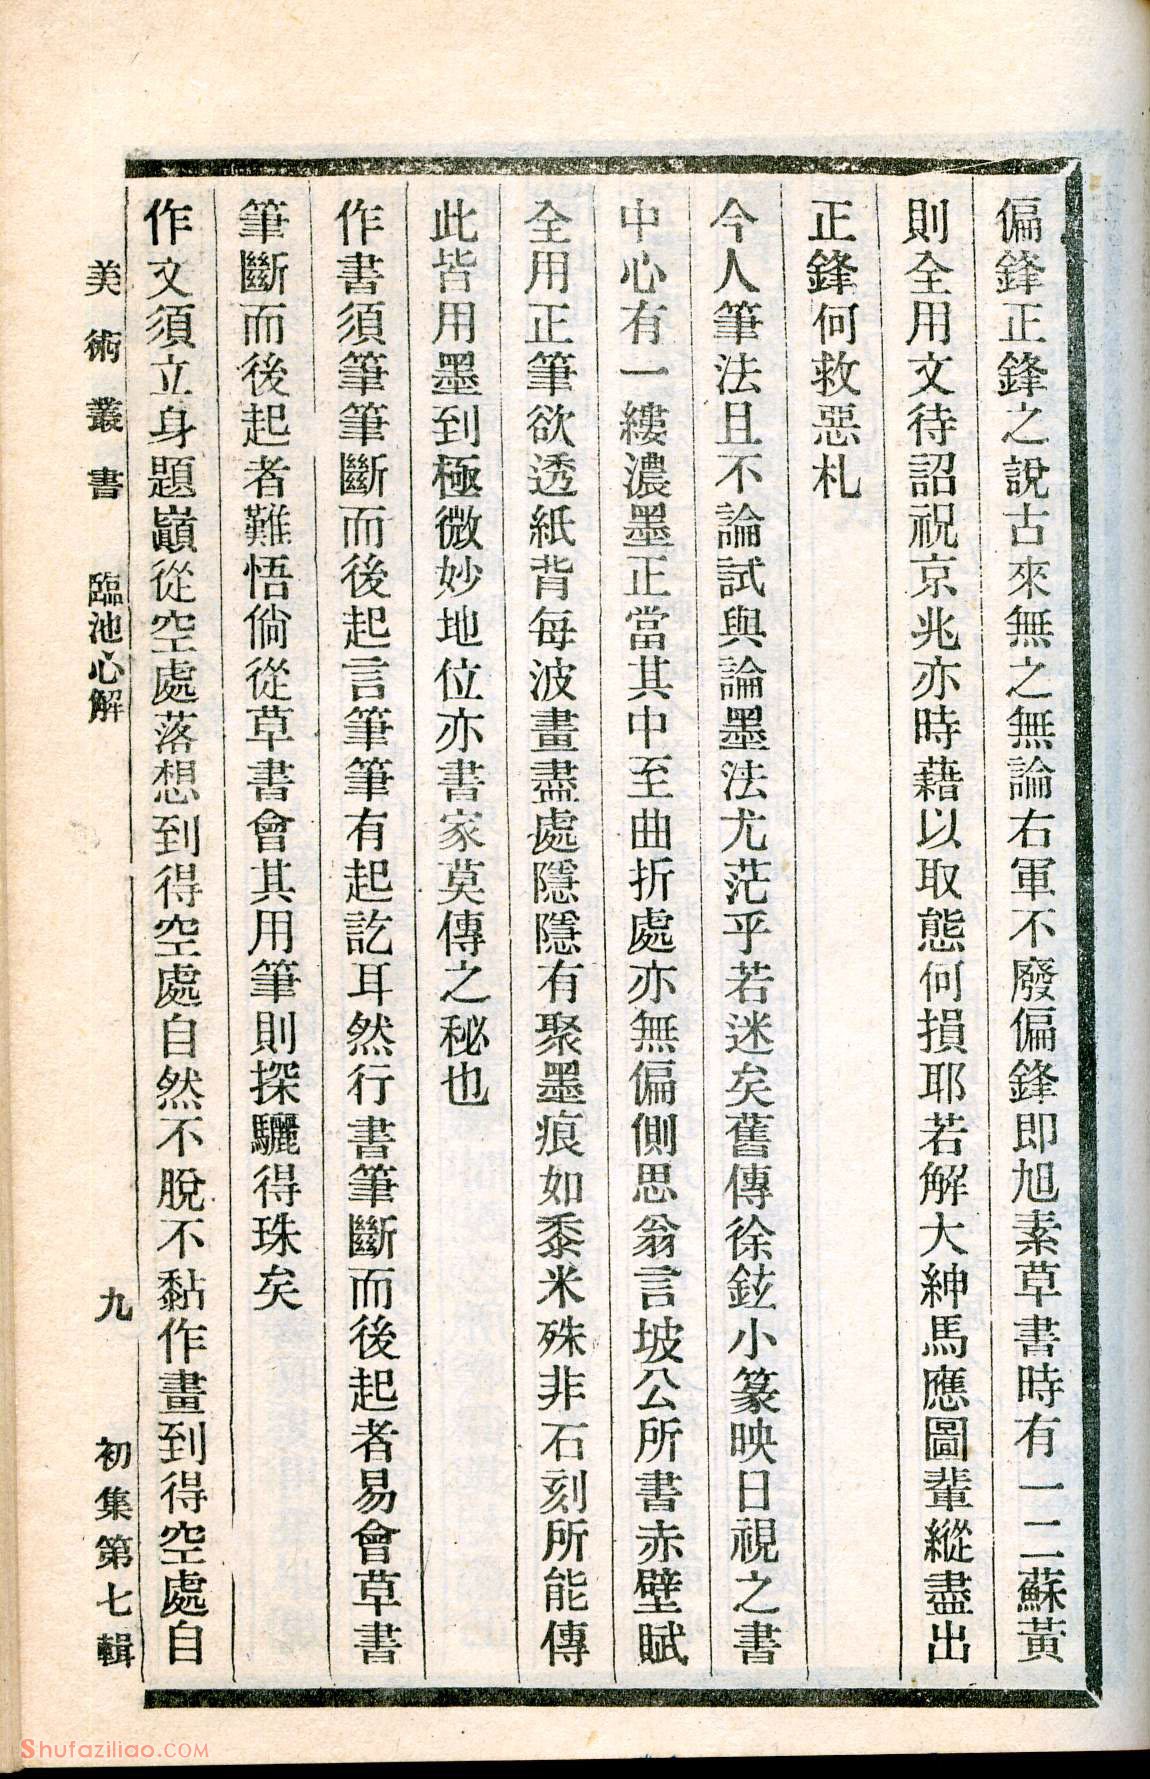 偏鋒正鋒之說古來無之無論右軍不廢偏鋒即旭素草書時有一二蘇黃
則全用文待詔祝京兆亦時藉以取態何損耶若解大紳馬應圖輩縱盡出
正鋒何救惡札
今人筆法且不論試與論墨法尤茫乎若迷矣舊傳徐鉉小篆映日視之書
中心有一縷濃墨正當其中至曲折處亦無偏側思翁言坡公所書赤壁賦
全用正筆欲透紙背每波畫盡處隱隱有聚墨痕如黍米殊非石刻所能傳
此皆用墨到極微妙地位亦書家莫傳之秘也
作書須筆筆斷而後起言筆筆有起訖耳然行書筆斷而後起者易會草書
筆斷而後起者難悟倘從草書會其用筆則探驪得珠矣
作文須立身題巔從空處落想到得空處自然不脫不黏作畫到得空處自
美術叢書 臨池心解 九 初集第七輯
Shufaziliao.COM